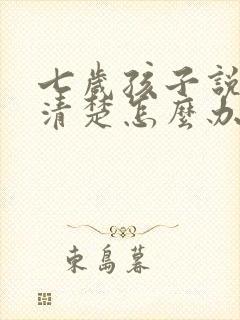 七歲孩子說
清楚怎麼办
東島暮